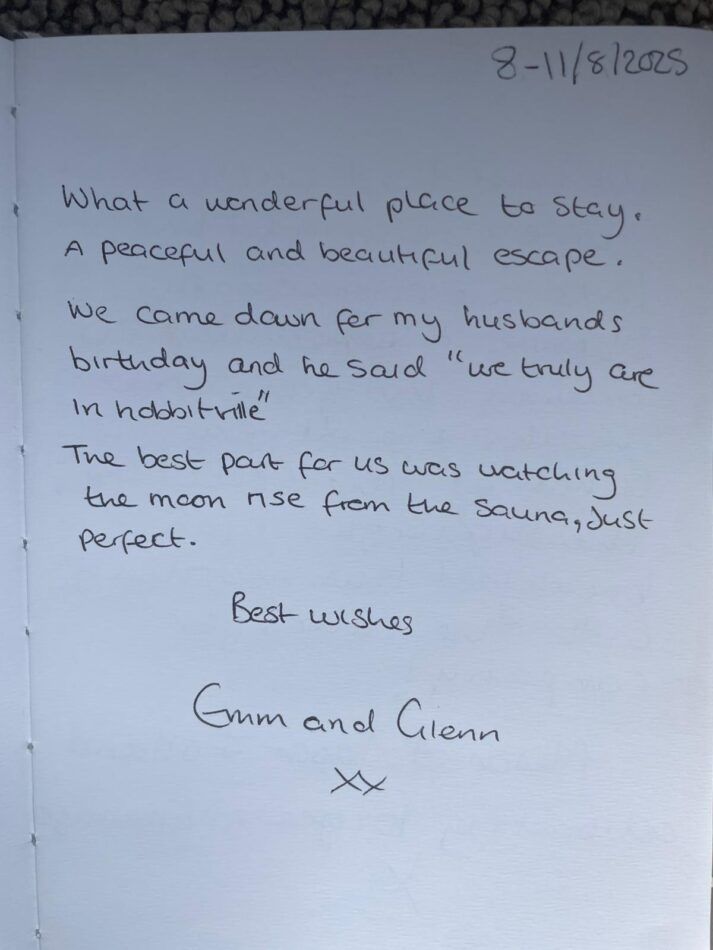 8-11/8/2025
What a wonderful place to stay.
A peaceful and beautiful escape.
We came down for my husbands
birthday and he said "we truly are
in hobbitville"
The best part for us was watching
the moon rise from the sauna, Just
perfect.
Best wishes
Emm and Glenn
xx